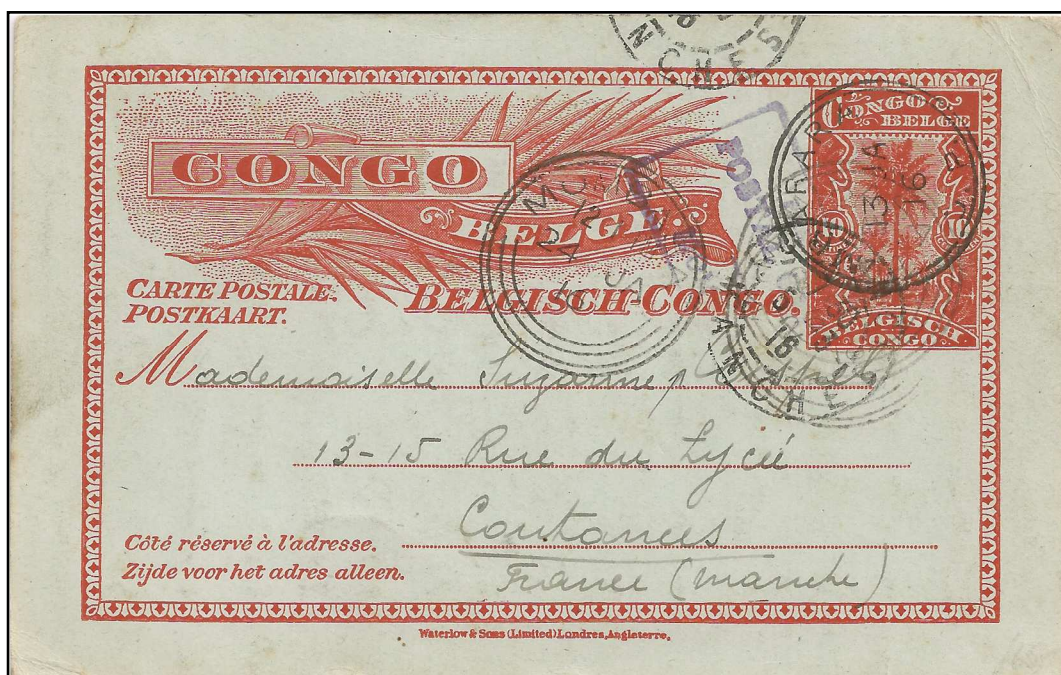 NCHES
CONGO
BELGE.
CARTE POSTALE.
POSTKAART.
BELGISCH-CONGO.
CONGO
BELGE
10
10
BELGISCH
CONGO
13 JA
16
JA
16
MANCHE
Mademoiselle Suzanne
13-15 Rue du Lycée
Coutances
France (Manche)
Côté réservé à l'adresse.
Zijde voor het adres alleen.
Waterlow & Sons (Limited) Londres, Angleterre.